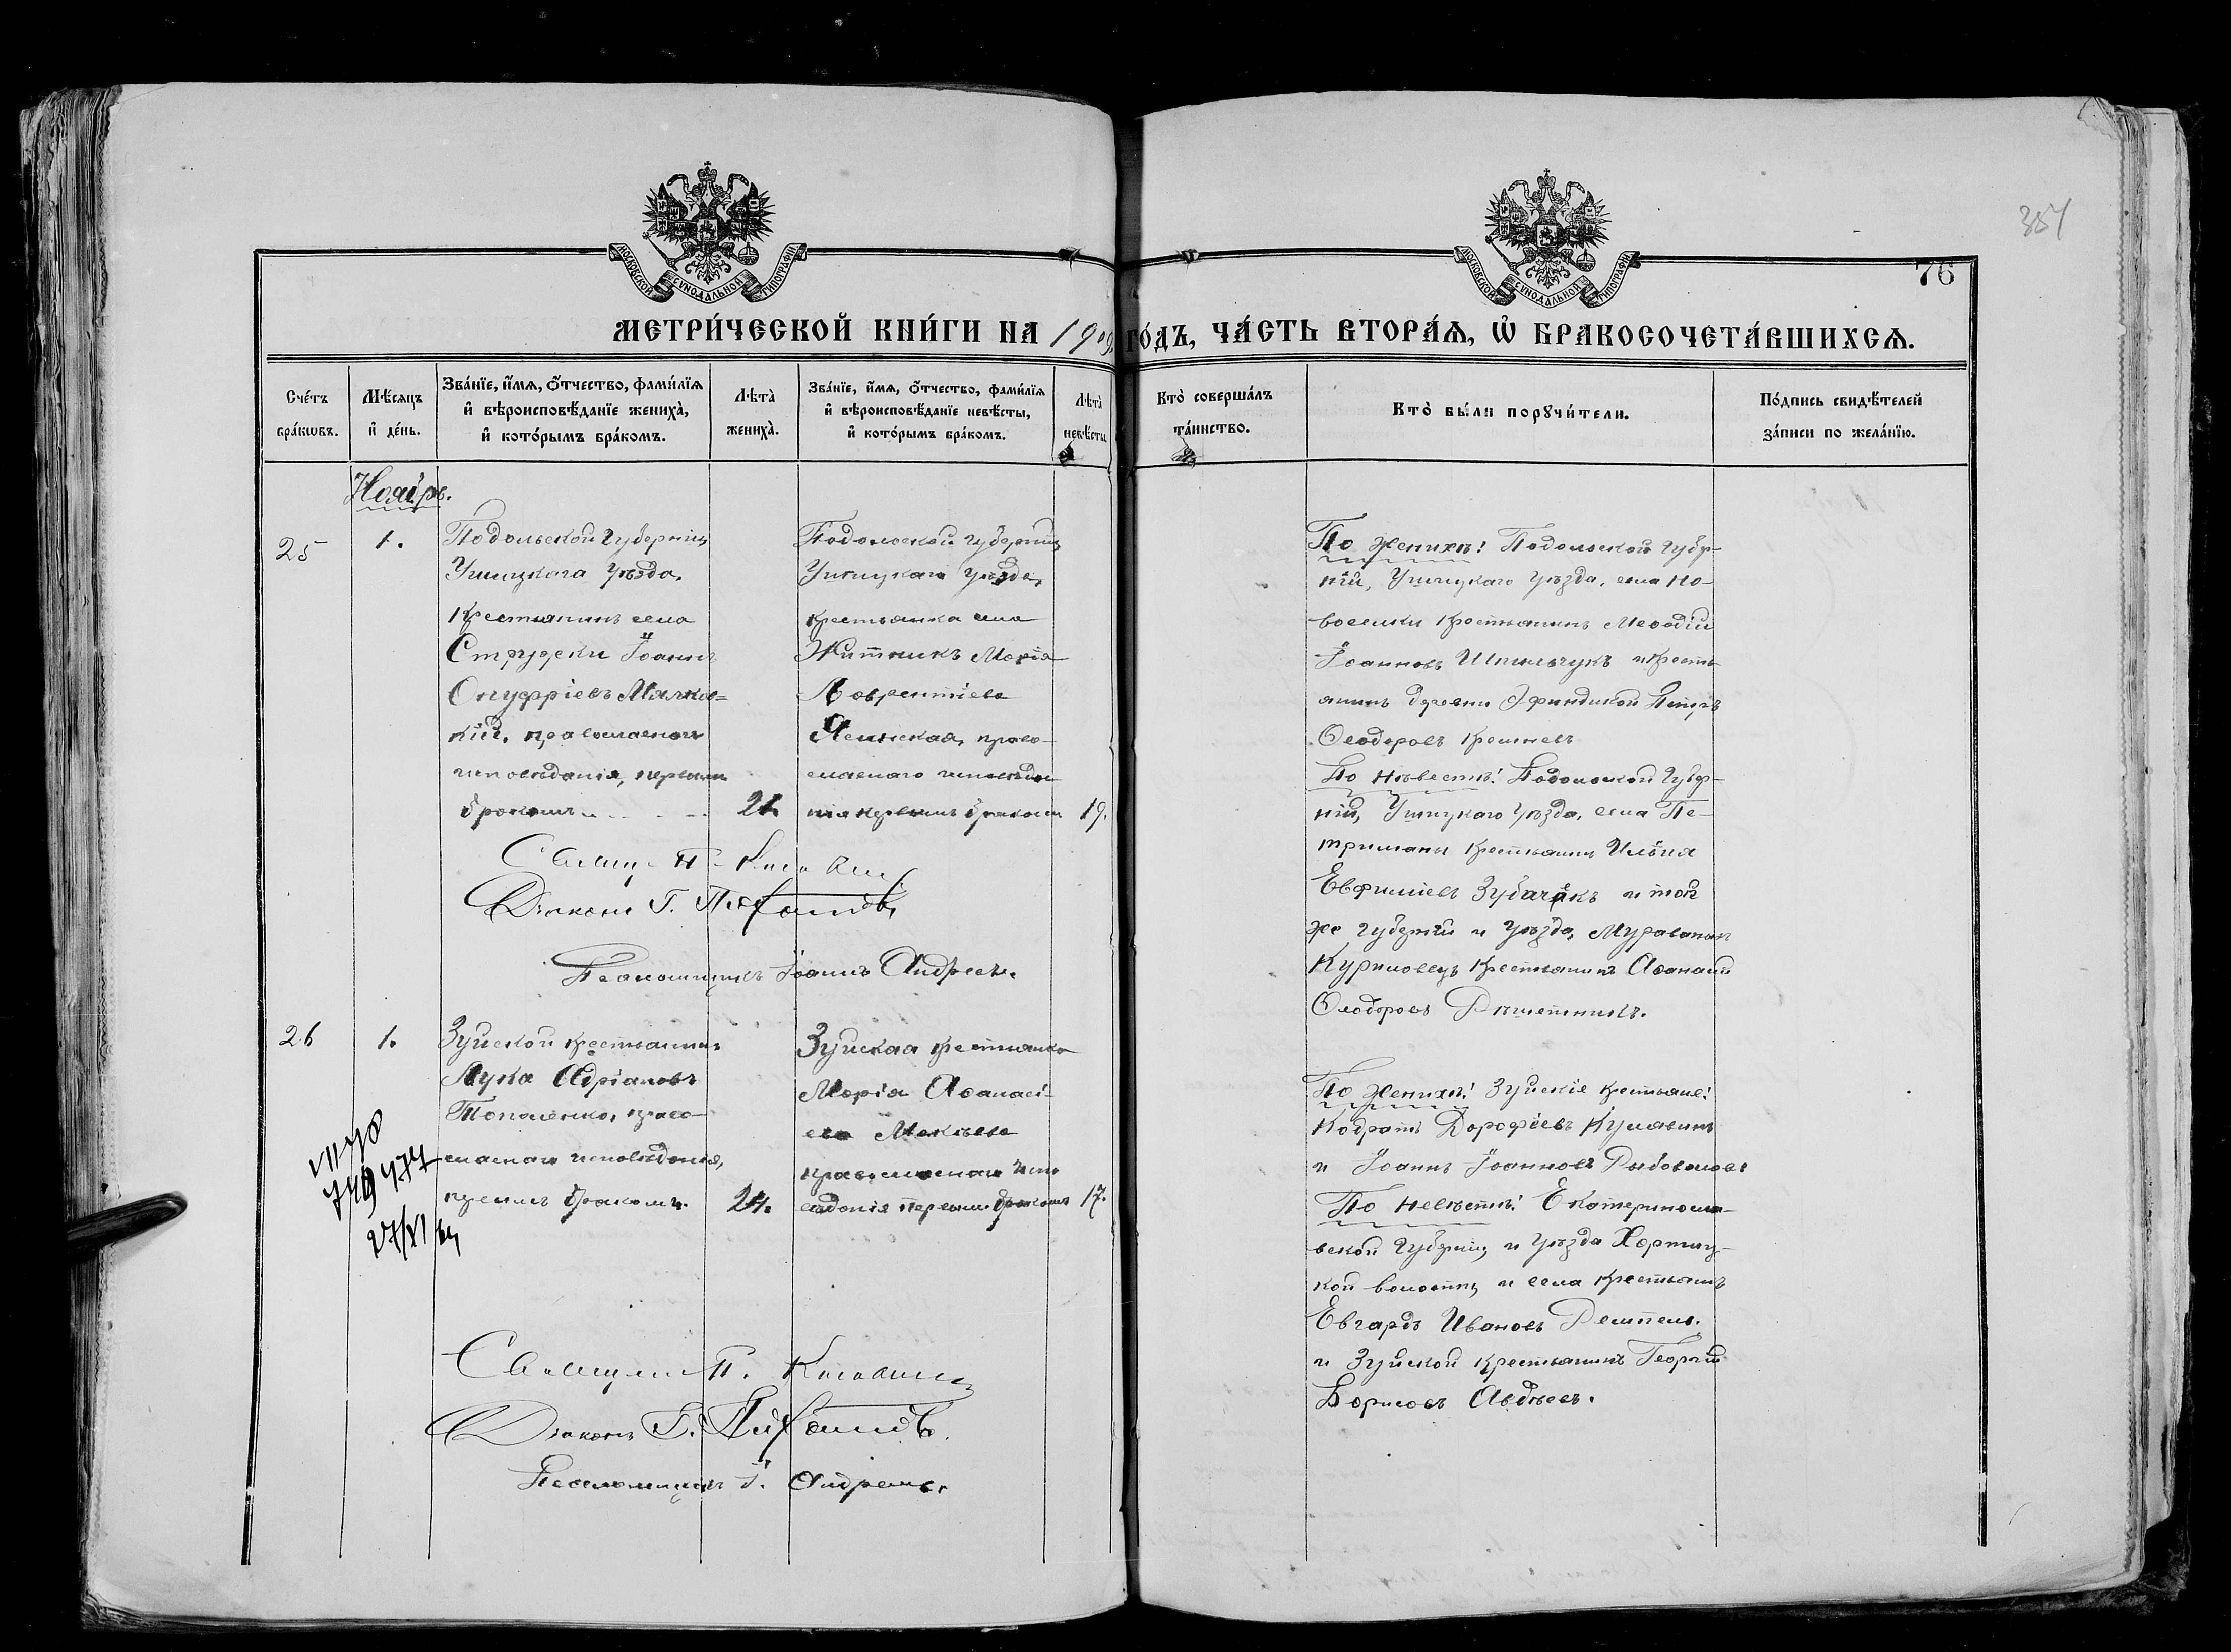 МОСКОВСКОЙ СУНОДАЛЬНОЙ ТИПОГРАФІИ
МОСКОВСКОЙ СУНОДАЛЬНОЙ ТИПОГРАФІИ
357
76
МЕТРИ́ЧЕСКОЙ КНИ́ГИ НА 1909 ГО́ДЪ, ЧА́СТЬ ВТОРА́Ѧ, Ѡ҆ БРАКОСОЧЕТА́ВШИХСѦ.
Сче́тъ бра́кѡвъ.
Мѣ́сяцъ и҆ де́нь.
Зва́нїе, и҆́мѧ, ѻ҆́тчество, фами́лїѧ
и҆ вѣроисповѣ́данїе жениха̀,
и҆ кото́рымъ бра́комъ.
Лѣта̀ жениха̀.
Зва́нїе, и҆́мѧ, ѻ҆́тчество, фами́лїѧ
и҆ вѣроисповѣ́данїе невѣ́сты,
и҆ кото́рымъ бра́комъ.
Лѣта̀ невѣ́сты.
Кто̀ соверша́лъ та́инство.
Кто̀ бы́ли порꙋчи́тели.
По́дпись свидѣ́телей
за́писи по жела́нїю.
Ноябрь.
25
1.
Подольской Губерніи
Ушицкаго Уѣзда,
крестьянинъ села
Струфеки Іоаннъ
Онуфріевъ Мялков-
кій, православнаго
исповѣданія, первымъ
бракомъ
21.
Подольской Губерніи
Ушицкаго Уѣзда,
крестьянка села
Житникъ Марія
Лаврентіева
Ясинская, право-
славнаго исповѣда-
нія первымъ бракомъ
19.
По женихѣ: Подольской губер-
ніи, Ушицкаго Уѣзда, села Но-
воселки крестьянинъ Меѳодій
Іоанновъ Шпильчукъ и кресть-
янинъ деревни Петръ
Ѳеодоровъ
По невѣстѣ: Подольской Губер-
ніи, Ушицкаго Уѣзда, села Пе-
триманы крестьянинъ Илія
Евфиміевъ Зубачакъ и той
же губерніи и Уѣзда,
Куриловецъ крестьянинъ Аѳанасій
Ѳеодоровъ Рѣшетникъ.
Священ. П.
Діаконъ Г.
Псаломщикъ Іоаннъ Андреевъ.
26
1.
Зуйской крестьянинъ
Лука Адріановъ
Топаленко, право-
славнаго исповѣданія,
первымъ бракомъ.
24.
Зуйская крестьянка
Марія Аѳанасі-
ева Мокіева
православнаго испо
вѣданія первымъ бракомъ
17.
По женихѣ: Зуйскіе крестьяне:
Кодратъ Дорофіевъ Кулявинъ
и Іоаннъ Іоанновъ Рыбоваловъ
По невѣстѣ: Екатеринosла-
вской Губерніи и Уѣзда Хортиц-
кой волости, и села крестьянинъ
Евгардъ Ивановъ Ремпель.
и Зуйской крестьянинъ Георгій
Борисовъ Авдѣевъ.
Священ. П.
Діаконъ Г.
Псаломщикъ І. Андреевъ.